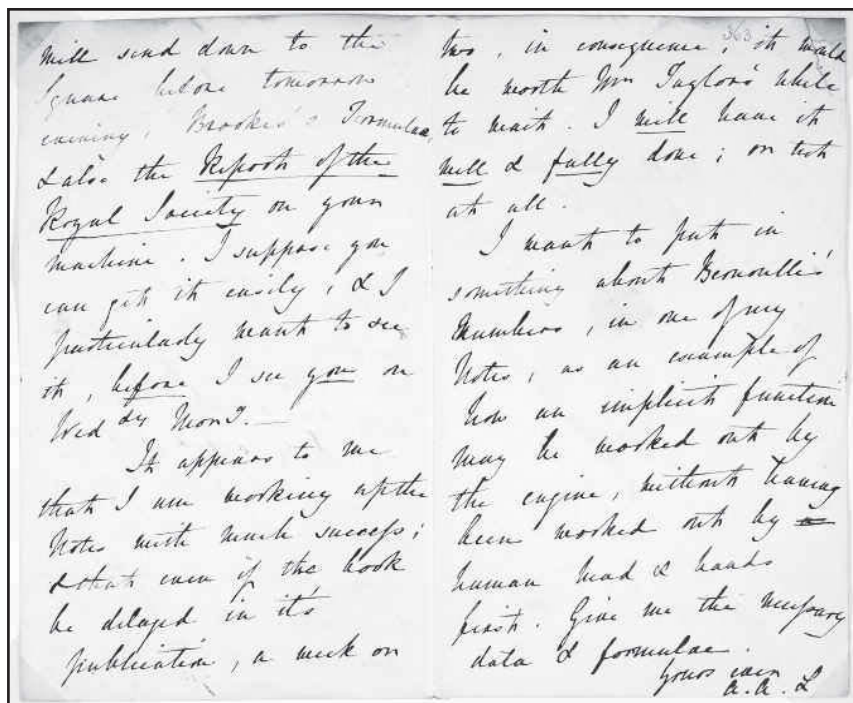 will send down to the
Square before tomorrow
evening, Brooke's Formulae,
& also the Report of the
Royal Society on your
machine. I suppose you
can get it easily, & I
particularly want to see
it, before I see you on
Wed^dy Morn^g.—
It appears to me
that I am working up the
Notes with much success;
& that even if the book
be delayed in it's
publication, a week or
363
two, in consequence, it would
be worth Mr Taylor's while
to wait. I will have it
well & fully done; or not
at all.
I want to put in
something about Bernoulli's
Numbers, in one of my
Notes, as an example of
how an implicit function
may be worked out by
the engine, without having
been worked out by
human head & hands
first. Give me the necessary
data & formulae.
Yours ever
A. A. L